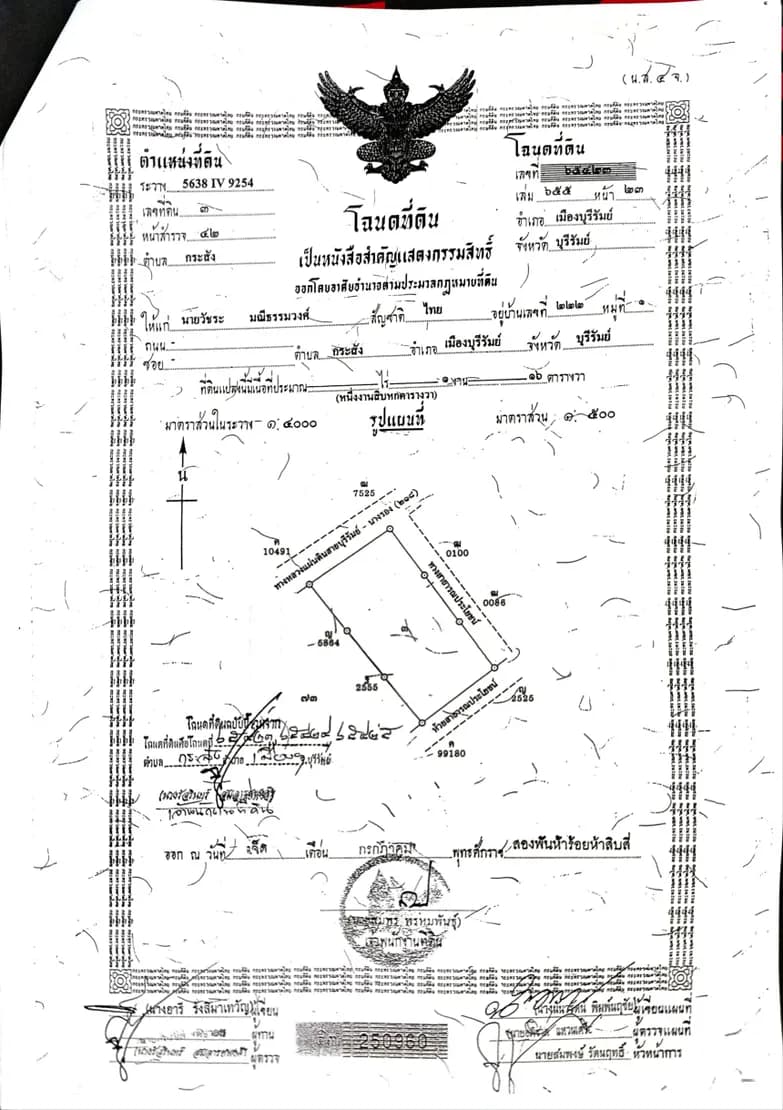 (น.ส. ๔ จ.)
ตำแหน่งที่ดิน
ระวาง 5638 IV 9254
เลขที่ดิน ๓
หน้าสำรวจ ๔๒
ตำบล กระสัง
โฉนดที่ดิน
เลขที่ ๖๕๔๒๓
เล่ม ๖๕๕ หน้า ๒๓
อำเภอ เมืองบุรีรัมย์
จังหวัด บุรีรัมย์
โฉนดที่ดิน
เป็นหนังสือสำคัญแสดงกรรมสิทธิ์
ออกโดยอาศัยอำนาจตามประมวลกฎหมายที่ดิน
ให้แก่ นายวัชระ มณีธรรมวงศ์ สัญชาติ ไทย อยู่บ้านเลขที่ ๒๒๒ หมู่ที่ ๑
ถนน -
ซอย - ตำบล กระสัง อำเภอ เมืองบุรีรัมย์ จังหวัด บุรีรัมย์
ที่ดินแปลงนี้มีเนื้อที่ประมาณ - ไร่ ๑ งาน ๑๖ ตารางวา
(หนึ่งงานสิบหกตารางวา)
มาตราส่วนในระวาง ๑:๔๐๐๐
รูปแผนที่
มาตราส่วน ๑:๕๐๐
น
ฒ
7525
ค
10491
ทางหลวงแผ่นดินสายบุรีรัมย์ - นางรอง (๒๑๘)
ฒ
0100
ทางสาธารณประโยชน์
ฒ
0086
ญ
5864
๓
2555
ญ
2525
ห้วยสาธารณประโยชน์
ค
99180
๗๓
โฉนดที่ดินคือโฉนดที่
ตำบล กระสัง อำเภอ เมือง จ.บุรีรัมย์
เจ้าพนักงานที่ดิน
ออก ณ วันที่ เจ็ด เดือน กรกฎาคม พุทธศักราช สองพันห้าร้อยห้าสิบสี่
พรหมพันธุ์)
เจ้าพนักงานที่ดิน
(นางอารี รังสิมาเทวัญ) ผู้เขียน
ผู้ทาน
ผู้ตรวจ
250360
พิมพ์นฤชัย) ผู้เขียนแผนที่
ผู้ตรวจแผนที่
นายสมพงษ์ รัตนฤทธิ์ หัวหน้าการ